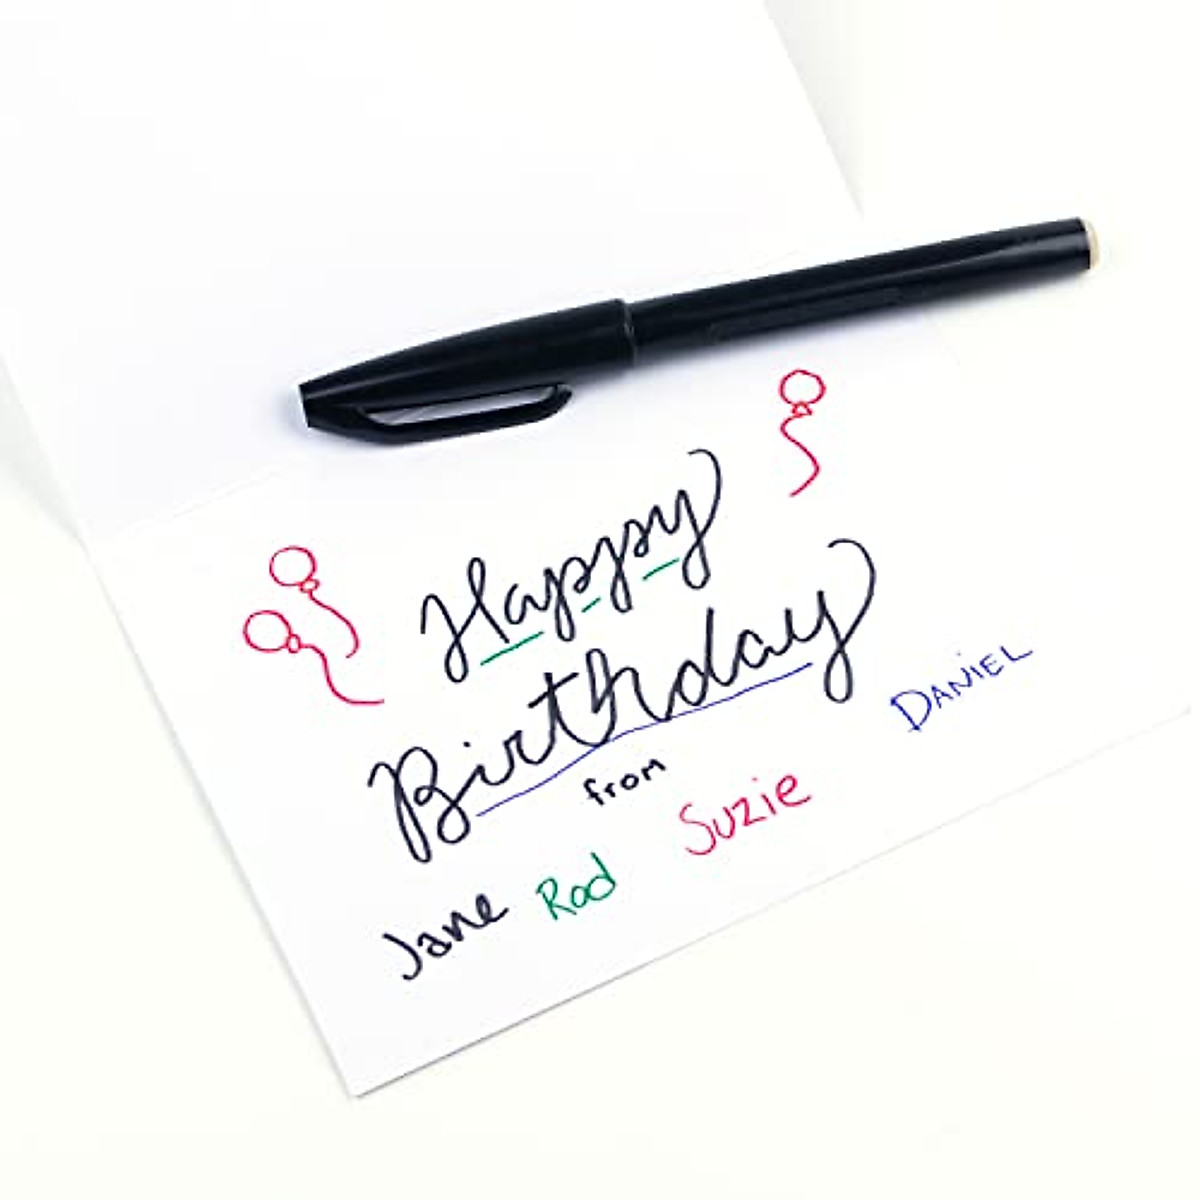 Happy
Birthday
from
Jane Rod Suzie DANiEL